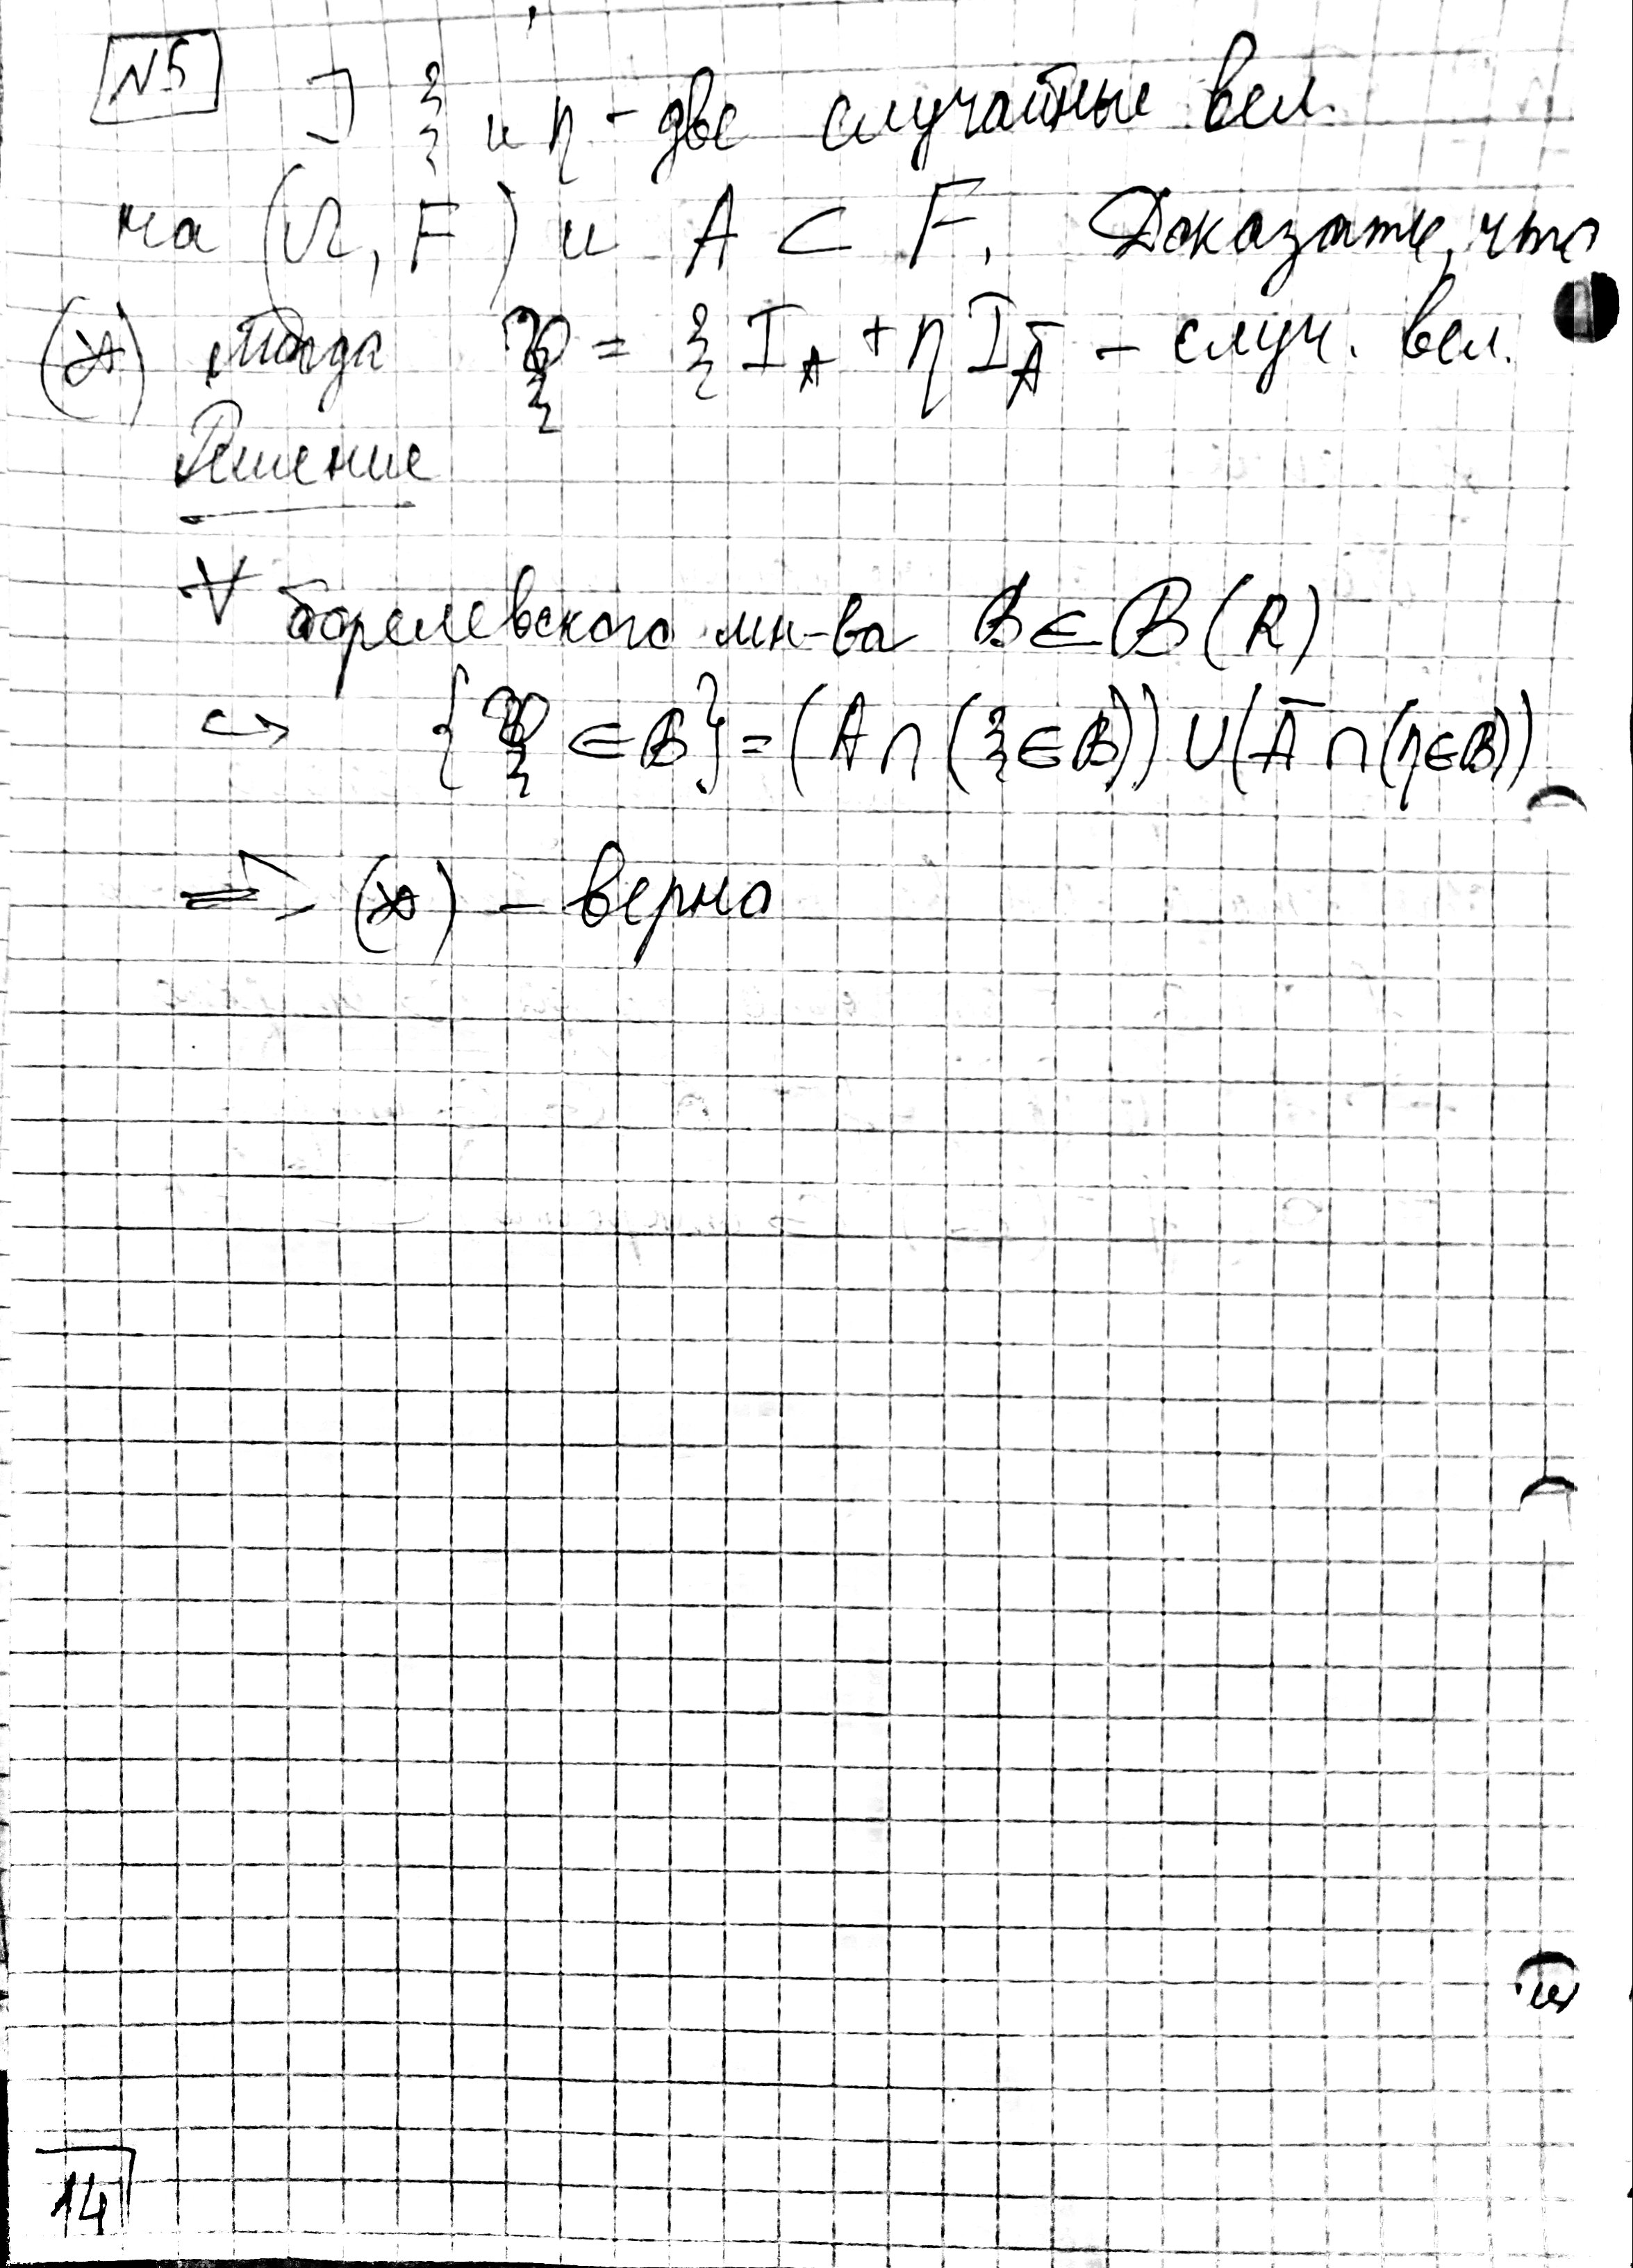 №5 ] ξ и η - две случайные вел.
на (Ω, F) и A ⊂ F. Доказать, что
(*) тогда = ξ I_A + η I_Ā - случ. вел.
Решение
∀ борелевского мн-ва B ∈ B(R)
↪ { ∈ B} = (A ∩ (ξ ∈ B)) ∪ (Ā ∩ (η ∈ B))
⇒ (*) - верно
14